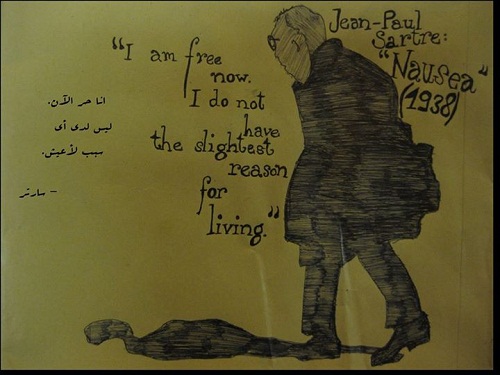 Jean-Paul
Sartre:
"Nausea"
(1938)
"I am free
now.
I do not
have
the slightest
reason
for
living."
انا حر الآن.
ليس لدى أى
سبب لأعيش.
- سارتر